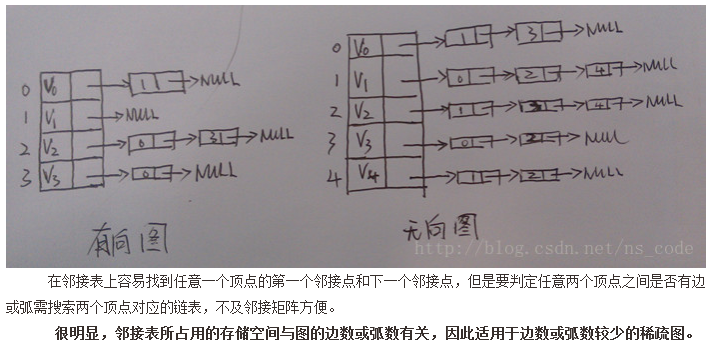 0 V0 → 1 → NULL
1 V1 → NULL
2 V2 → 0 → 3 → NULL
3 V3 → 0 → NULL
有向图
0 V0 → 1 → 3 → NULL
1 V1 → 0 → 2 → 4 → NULL
2 V2 → 1 → 3 → 4 → NULL
3 V3 → 0 → 2 → NULL
4 V4 → 1 → 2 → NULL
无向图
http://blog.csdn.net/ns_code
在邻接表上容易找到任意一个顶点的第一个邻接点和下一个邻接点，但是要判定任意两个顶点之间是否有边
或弧需搜索两个顶点对应的链表，不及邻接矩阵方便。
很明显，邻接表所占用的存储空间与图的边数或弧数有关，因此适用于边数或弧数较少的稀疏图。